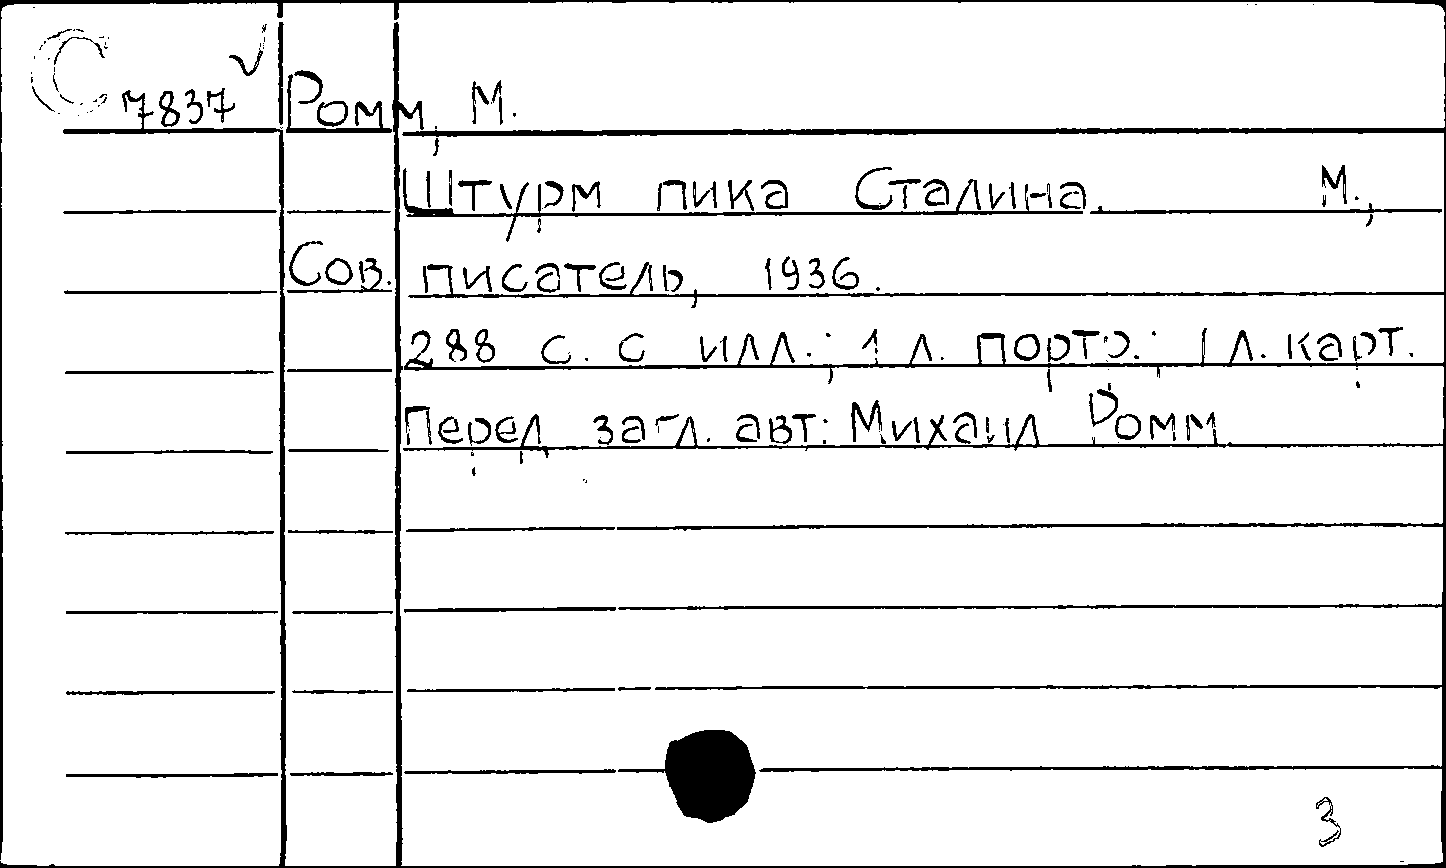 С 7837 Ромм, М.
Штурм пика Сталина. М.,
Сов. писатель, 1936.
288 с. с илл.; 1 л. портр.; 1 л. карт.
Перед загл. авт: Михаил Ромм
3